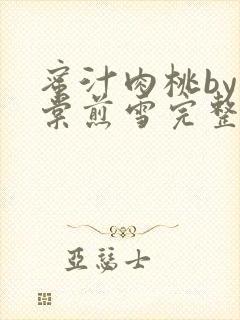 蜜汁肉桃by
棠煎雪完整
亞瑟士